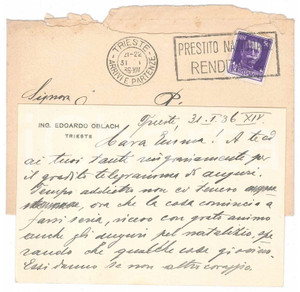 TRIESTE
21-22
31 I
36 XIV
ARRIVI E PARTENZE
PRESTITO NA
RENDI
Signora
ING. EDOARDO OBLACH
TRIESTE
31. I 36 XIV.
Cara ! A te ed
ai tuoi tante ringraziamente per
il gradito telegramma di auguri.
Tempo addietro non ci tenevo
, ora che la cosa comincia a
farsi seria, ricevo con grato animo
anche gli auguri pel natalizio, spe
rando che qualche cosa giovino.
Essi danno se non altro coraggio.